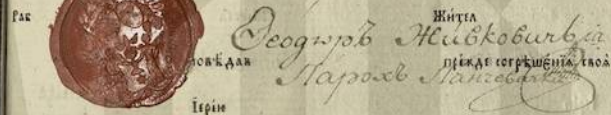 Раб Жи́тел
Ѳеодѡръ Живковичь
повѣ́дав пре́жде согрѣше́нїѧ своѧ
Парохъ Панчевачкїй
Їере́ю